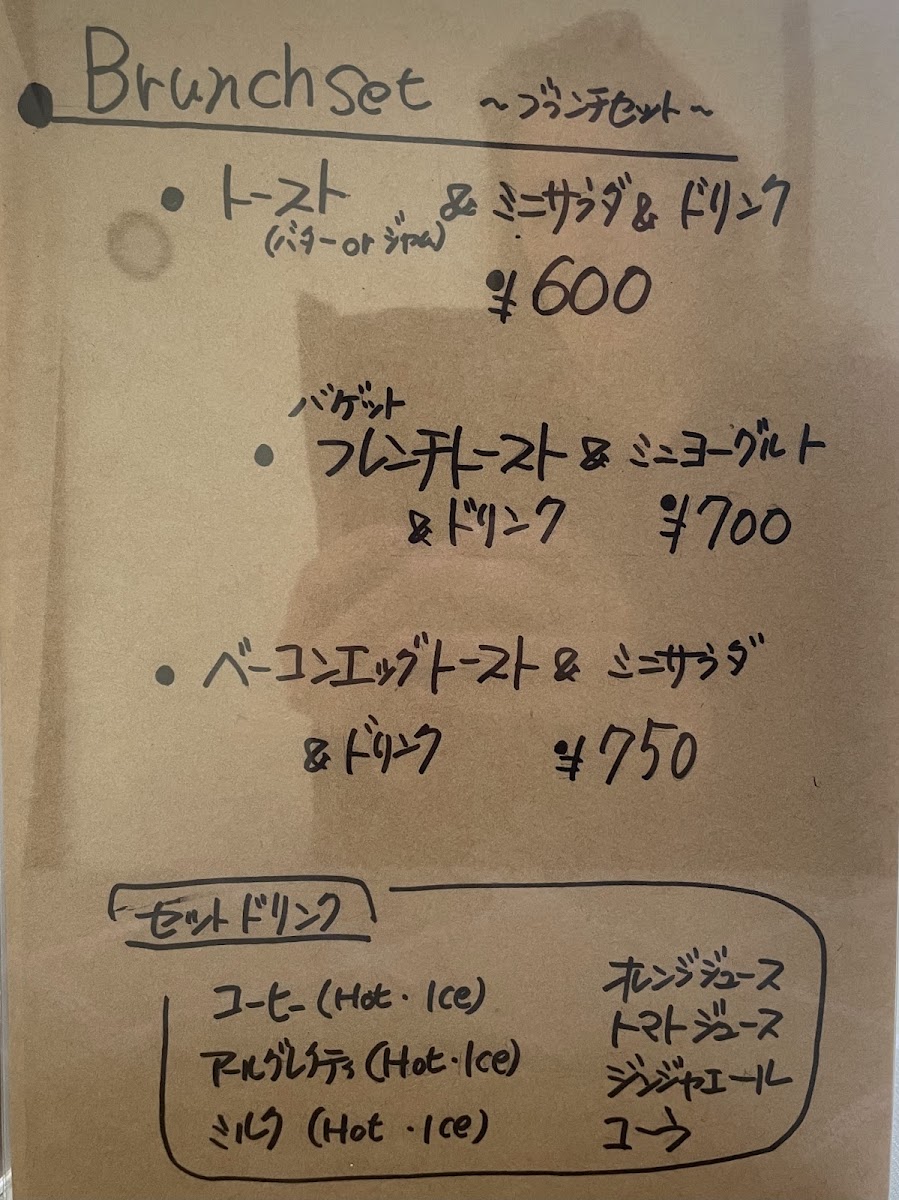 Brunch set ～ブランチセット～
・トースト & ミニサラダ & ドリンク
(バター or ジャム)
¥600
バゲット
・フレンチトースト & ミニヨーグルト
& ドリンク ¥700
・ベーコンエッグトースト & ミニサラダ
& ドリンク ¥750
セットドリンク
コーヒー (Hot・Ice)
アールグレイティ (Hot・Ice)
ミルク (Hot・Ice)
オレンジジュース
トマトジュース
ジンジャエール
コーラ